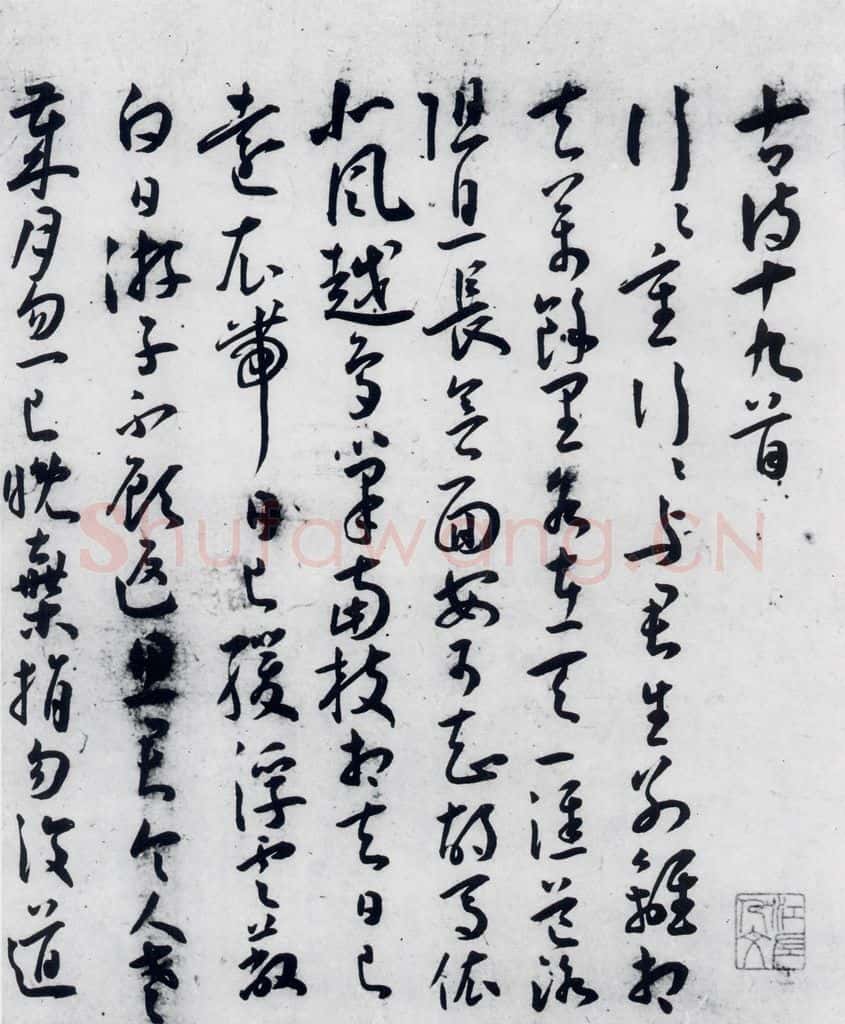 古詩十九首
行々重行々與君生別離相
去萬餘里各在天一涯道路
阻且長會面安可知胡馬依
北風越鳥巢南枝相去日已
遠衣帶日已緩浮雲蔽
白日游子不顧返思君令人老
歲月忽已晚棄捐勿復道
Shufawang.CN